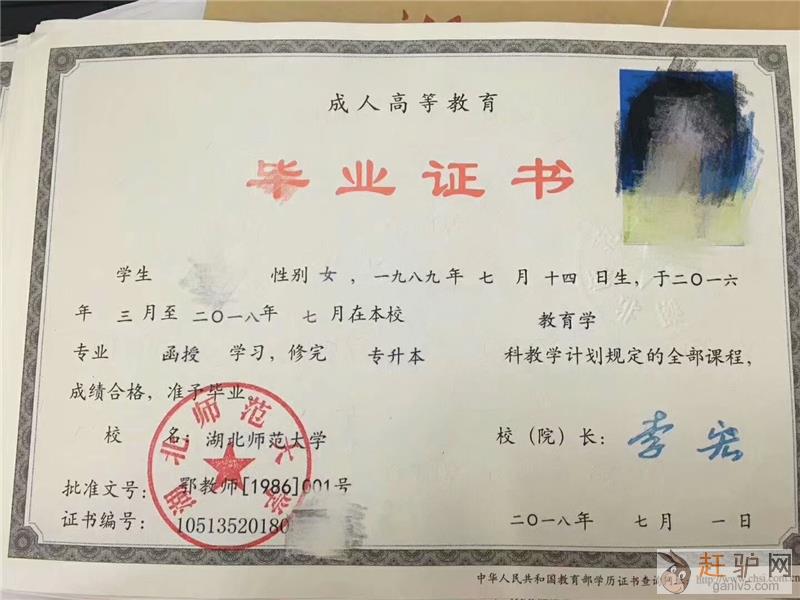 成人高等教育
毕业证书
学生 性别 女 ，一九八九年 七 月 十四 日生，于二〇一六
年 三 月至 二〇一八年 七 月在本校 教育学
专业 函授 学习，修完 专升本 科教学计划规定的全部课程，
成绩合格，准予毕业。
校 名：湖北师范大学 校（院）长：李宏
湖北师范大学
批准文号：鄂教师[1986]001号
证书编号：10513520180 二〇一八年 七月 一日
中华人民共和国教育部学历证书查询网址 http://www.chsi.com.cn
赶驴网
www.ganlv5.com